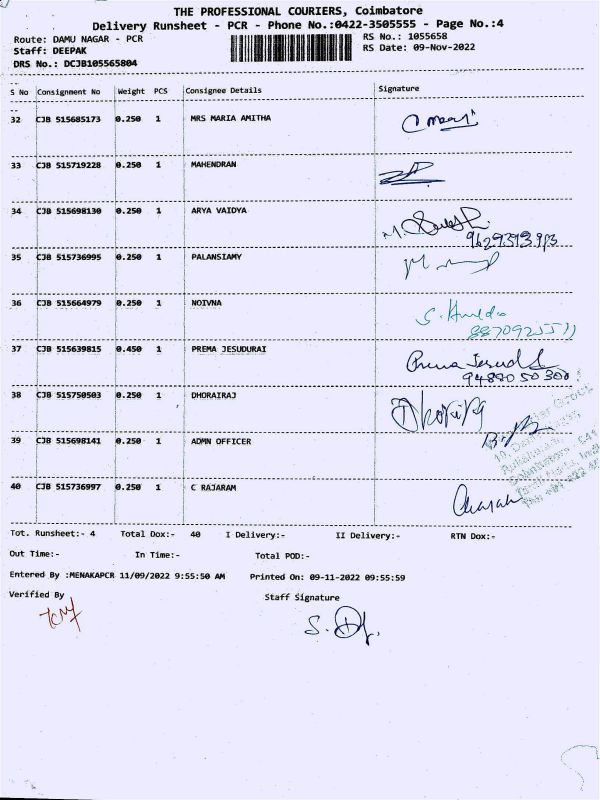 THE PROFESSIONAL COURIERS, Coimbatore
Delivery Runsheet - PCR - Phone No.:0422-3505555 - Page No.:4
Route: DAMU NAGAR - PCR
RS No.: 1055658
Staff: DEEPAK
RS Date: 09-Nov-2022
DRS No.: DCJB105565804
S No Consignment No Weight PCS Consignee Details Signature
32 CJB 515685173 0.250 1 MRS MARIA AMITHA
33 CJB 515719228 0.250 1 MAHENDRAN
34 CJB 515698130 0.250 1 ARYA VAIDYA
35 CJB 515736995 0.250 1 PALANSIAMY
36 CJB 515664979 0.250 1 NOIVNA
8870925511
37 CJB 515639815 0.450 1 PREMA JESUDURAI Prema
9488050300
38 CJB 515750503 0.250 1 DHORAIRAJ
39 CJB 515698141 0.250 1 ADMN OFFICER
40 CJB 515736997 0.250 1 C RAJARAM
Tot. Runsheet:- 4 Total Dox:- 40 I Delivery:- II Delivery:- RTN Dox:-
Out Time:- In Time:- Total POD:-
Entered By :MENAKAPCR 11/09/2022 9:55:50 AM Printed On: 09-11-2022 09:55:59
Verified By Staff Signature